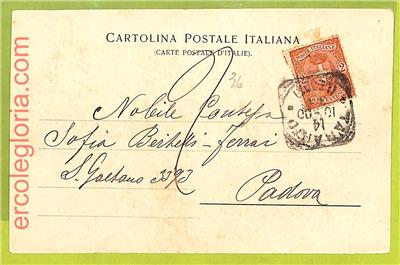 CARTOLINA POSTALE ITALIANA
(CARTE POSTALE D'ITALIE).
36
POSTE ITALIANE
2
Nobile Contessa
Sofia Bertelli-Ferrai
S. Gaetano 3393
Padova
14
ercolegloria.com